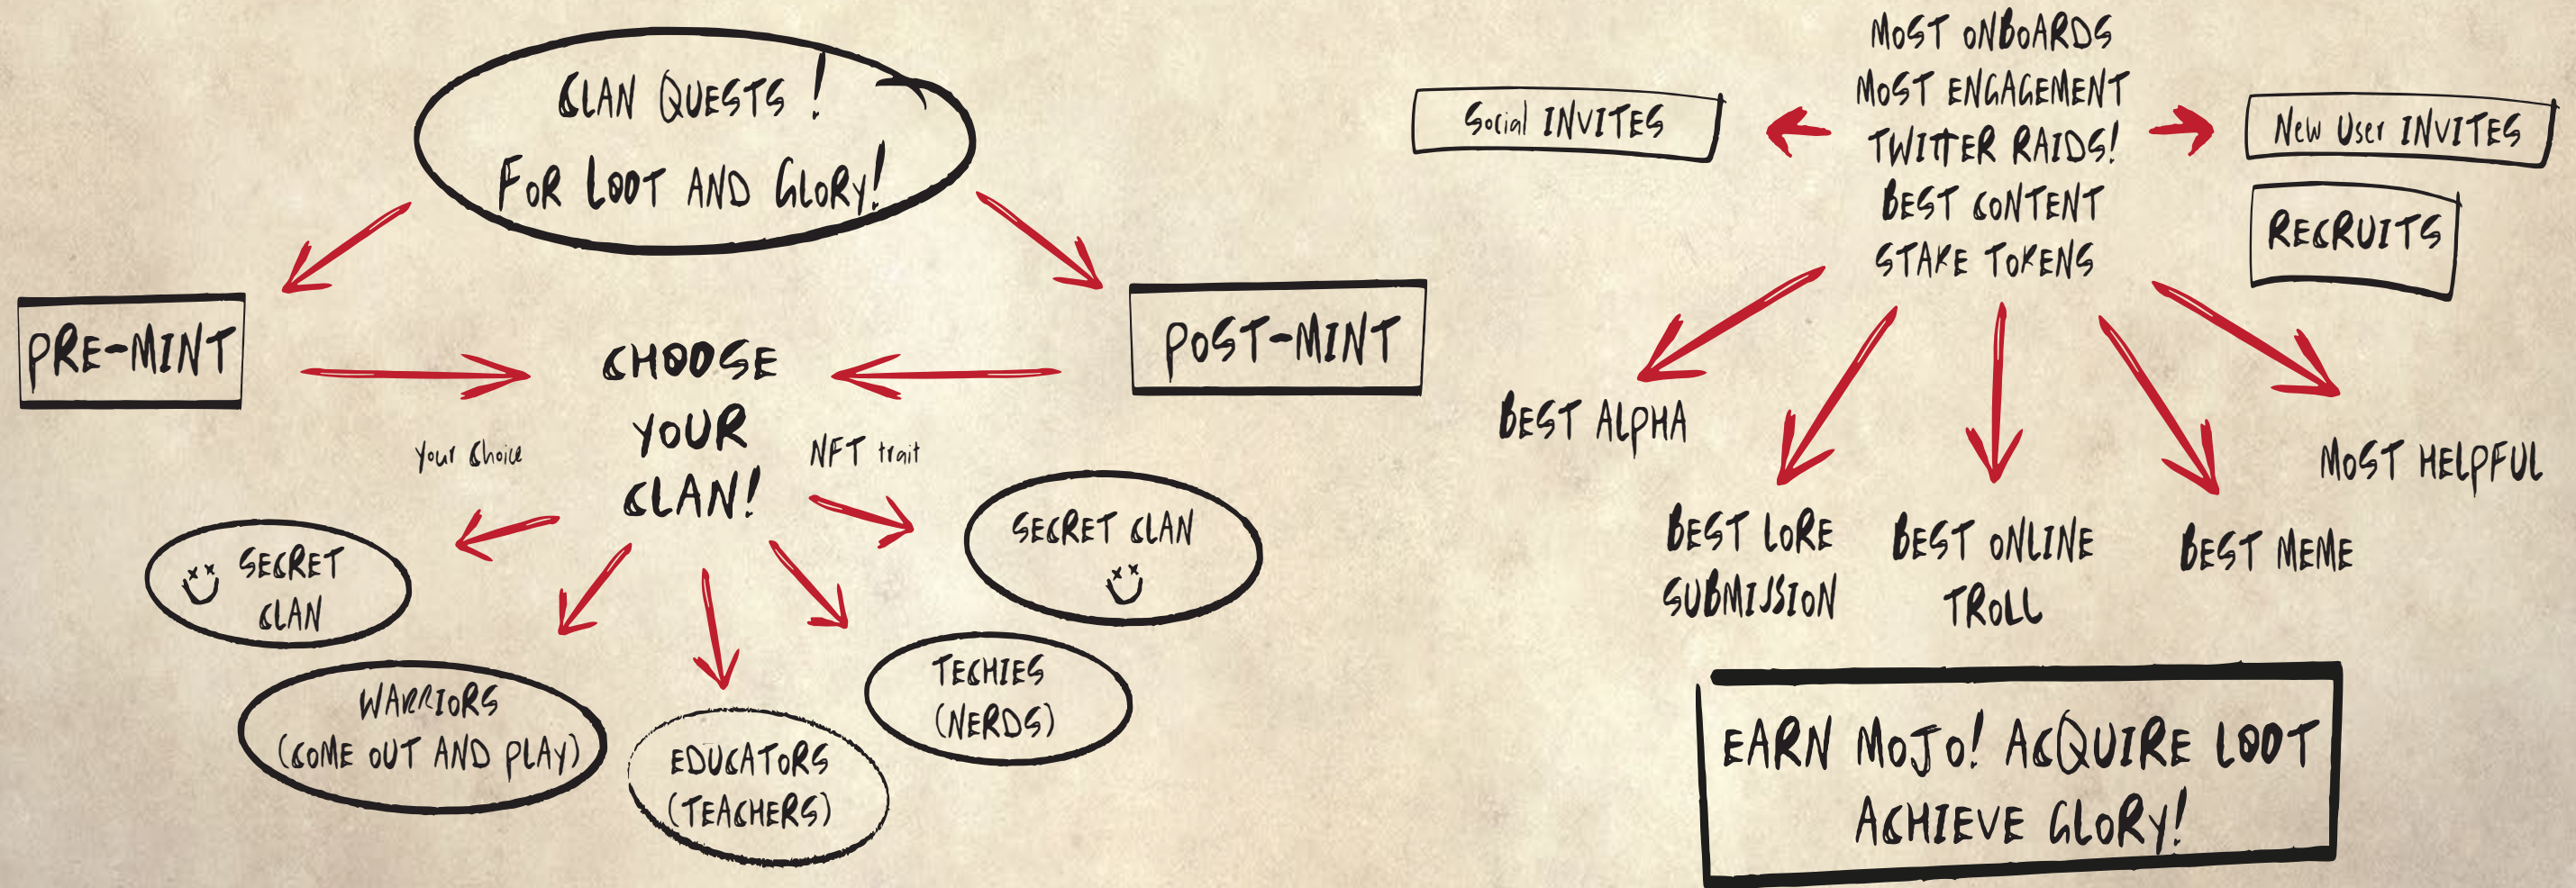 CLAN QUESTS!
FOR LOOT AND GLORY!
PRE-MINT
POST-MINT
CHOOSE
YOUR
CLAN!
Your Choice
NFT trait
SECRET
CLAN
WARRIORS
(COME OUT AND PLAY)
EDUCATORS
(TEACHERS)
TECHIES
(NERDS)
SECRET CLAN
MOST ONBOARDS
MOST ENGAGEMENT
TWITTER RAIDS!
BEST CONTENT
STAKE TOKENS
Social INVITES
New User INVITES
RECRUITS
BEST ALPHA
BEST LORE
SUBMISSION
BEST ONLINE
TROLL
BEST MEME
MOST HELPFUL
EARN MOJO! ACQUIRE LOOT
ACHIEVE GLORY!